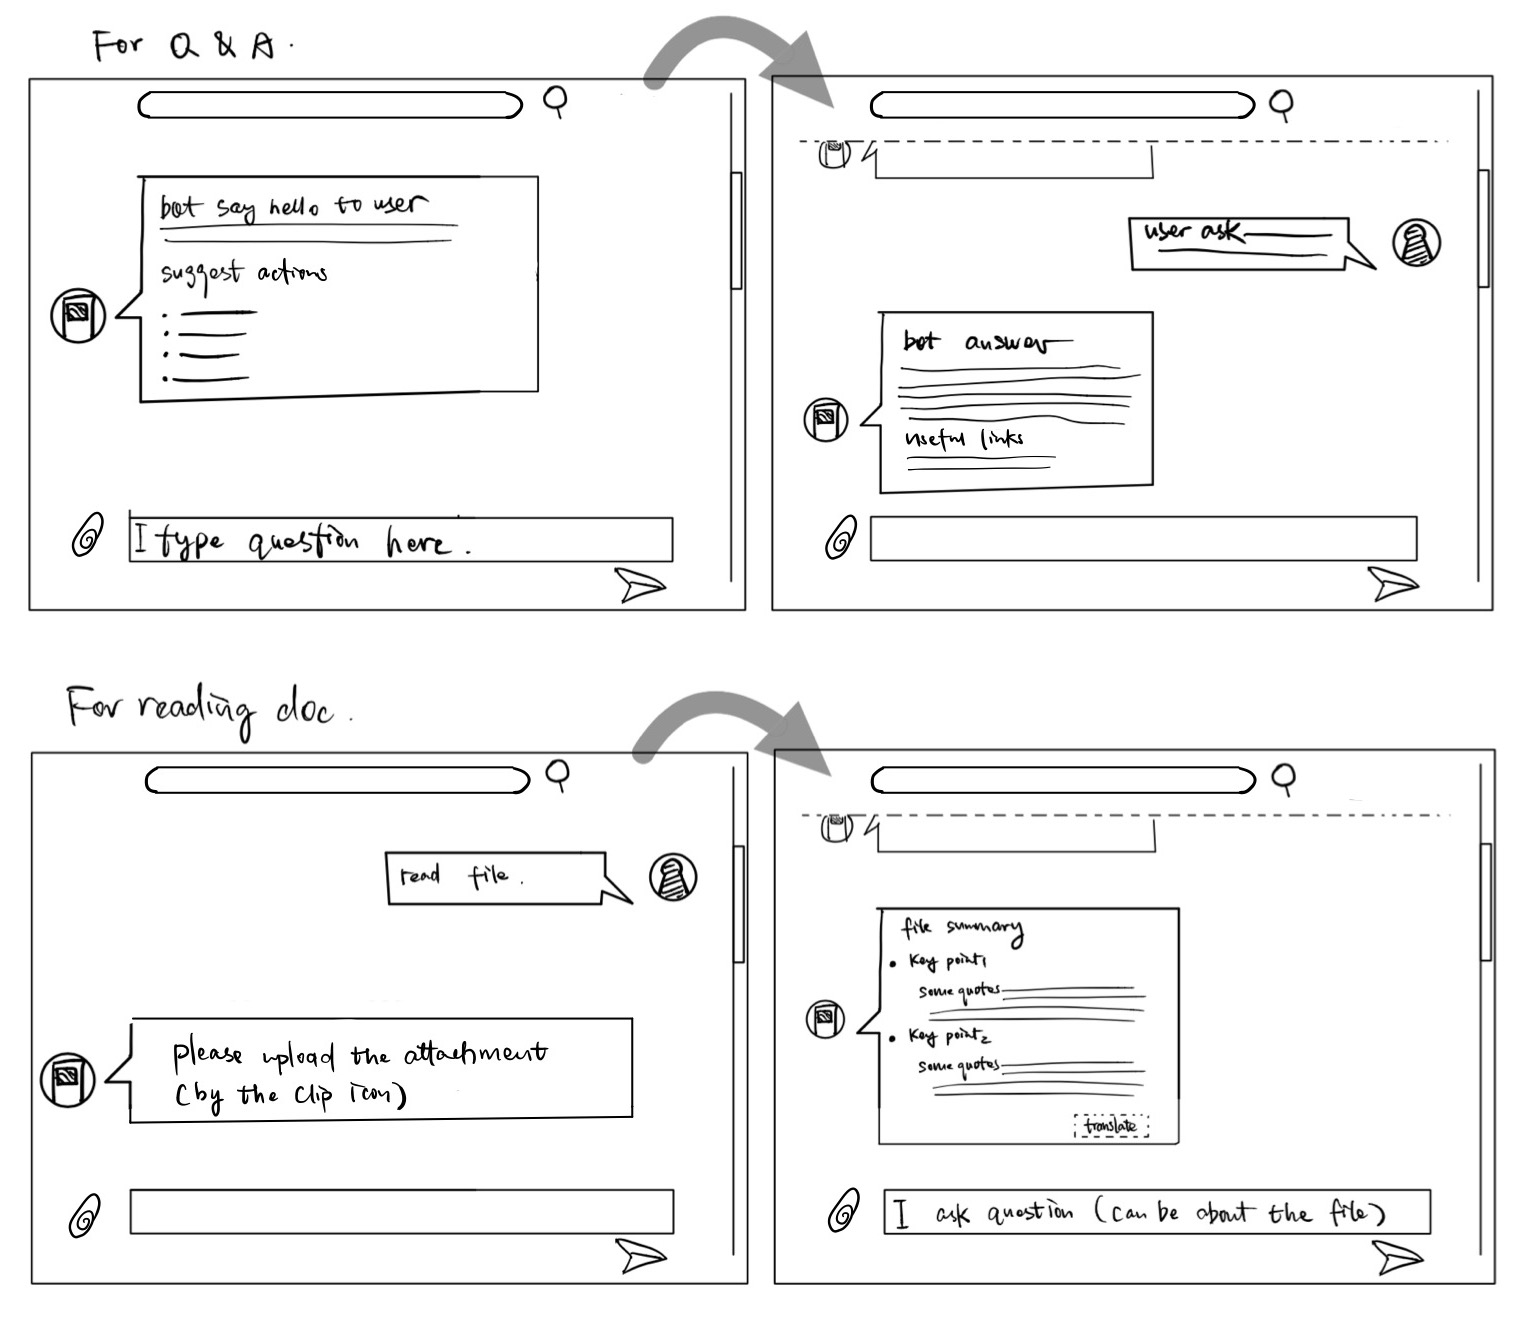 For Q & A.
bot say hello to user
suggest actions
I type question here.
user ask
bot answer
useful links
For reading doc.
read file.
please upload the attachment
(by the clip icon)
file summary
• Key point1
some quotes
• Key point2
some quotes
translate
I ask question (can be about the file)